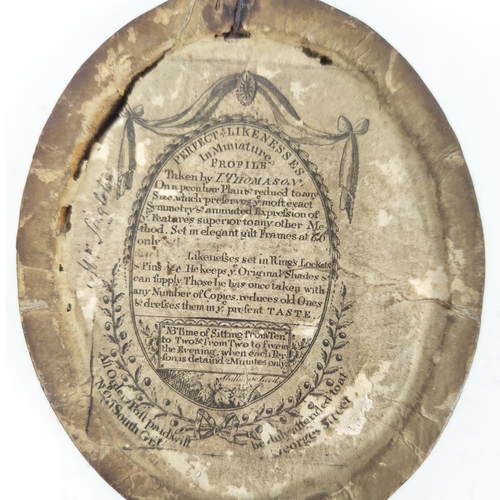 PERFECT LIKENESSES
In Miniature
PROFILE
Taken by I. THOMASON,
On a peculiar Plan & reduced to any
Size, which preserves yͤ most exact
Symmetry & animated Expression of
yͤ Features superior to any other Me-
thod. Set in elegant gilt Frames at 6/6
only
Likenesses set in Rings, Lockets
& Pins &c. He keeps yͤ Original Shades &
can supply Those he has once taken with
any Number of Copies, reduces old Ones
& dresses them in yͤ present TASTE.
NB Time of Sitting from Ten
to Two & from Two to five in
the Evening, when each Per-
son is detain'd 2 Minutes only
All Orders Post paid will
be duly attended to at
South Grt
Georges Street
Mr